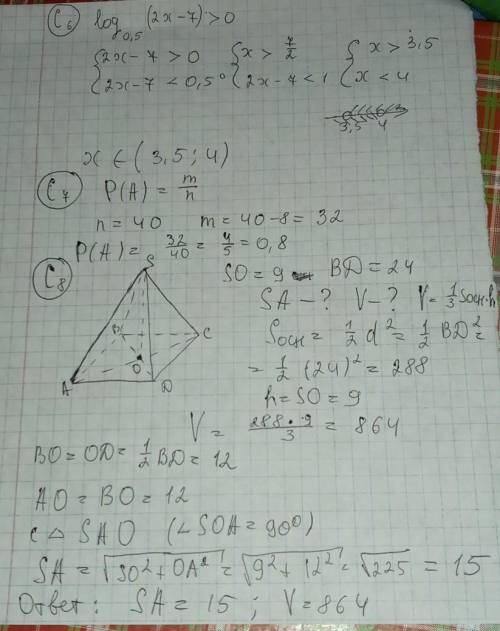 C6 log₀,₅(2x-7)>0
{2x-7>0 {x>7/2 {x>3,5
{2x-7<0,5⁰ {2x-7<1 {x<4
3,5 4
x∈(3,5;4)
C7 P(A)=m/n
n=40 m=40-8=32
P(A)=32/40=4/5=0,8
C8 S SO=9 BD=24
SA-? V-? V=1/3Sосн·h
Sосн=1/2d²=1/2BD²=
=1/2(24)²=288
h=SO=9
B C
O
A D
V=288·9/3=864
BO=OD=1/2BD=12
AO=BO=12
△SAO (∠SOA=90⁰)
SA=√SO²+OA²=√9²+12²=√225=15
Ответ: SA=15; V=864